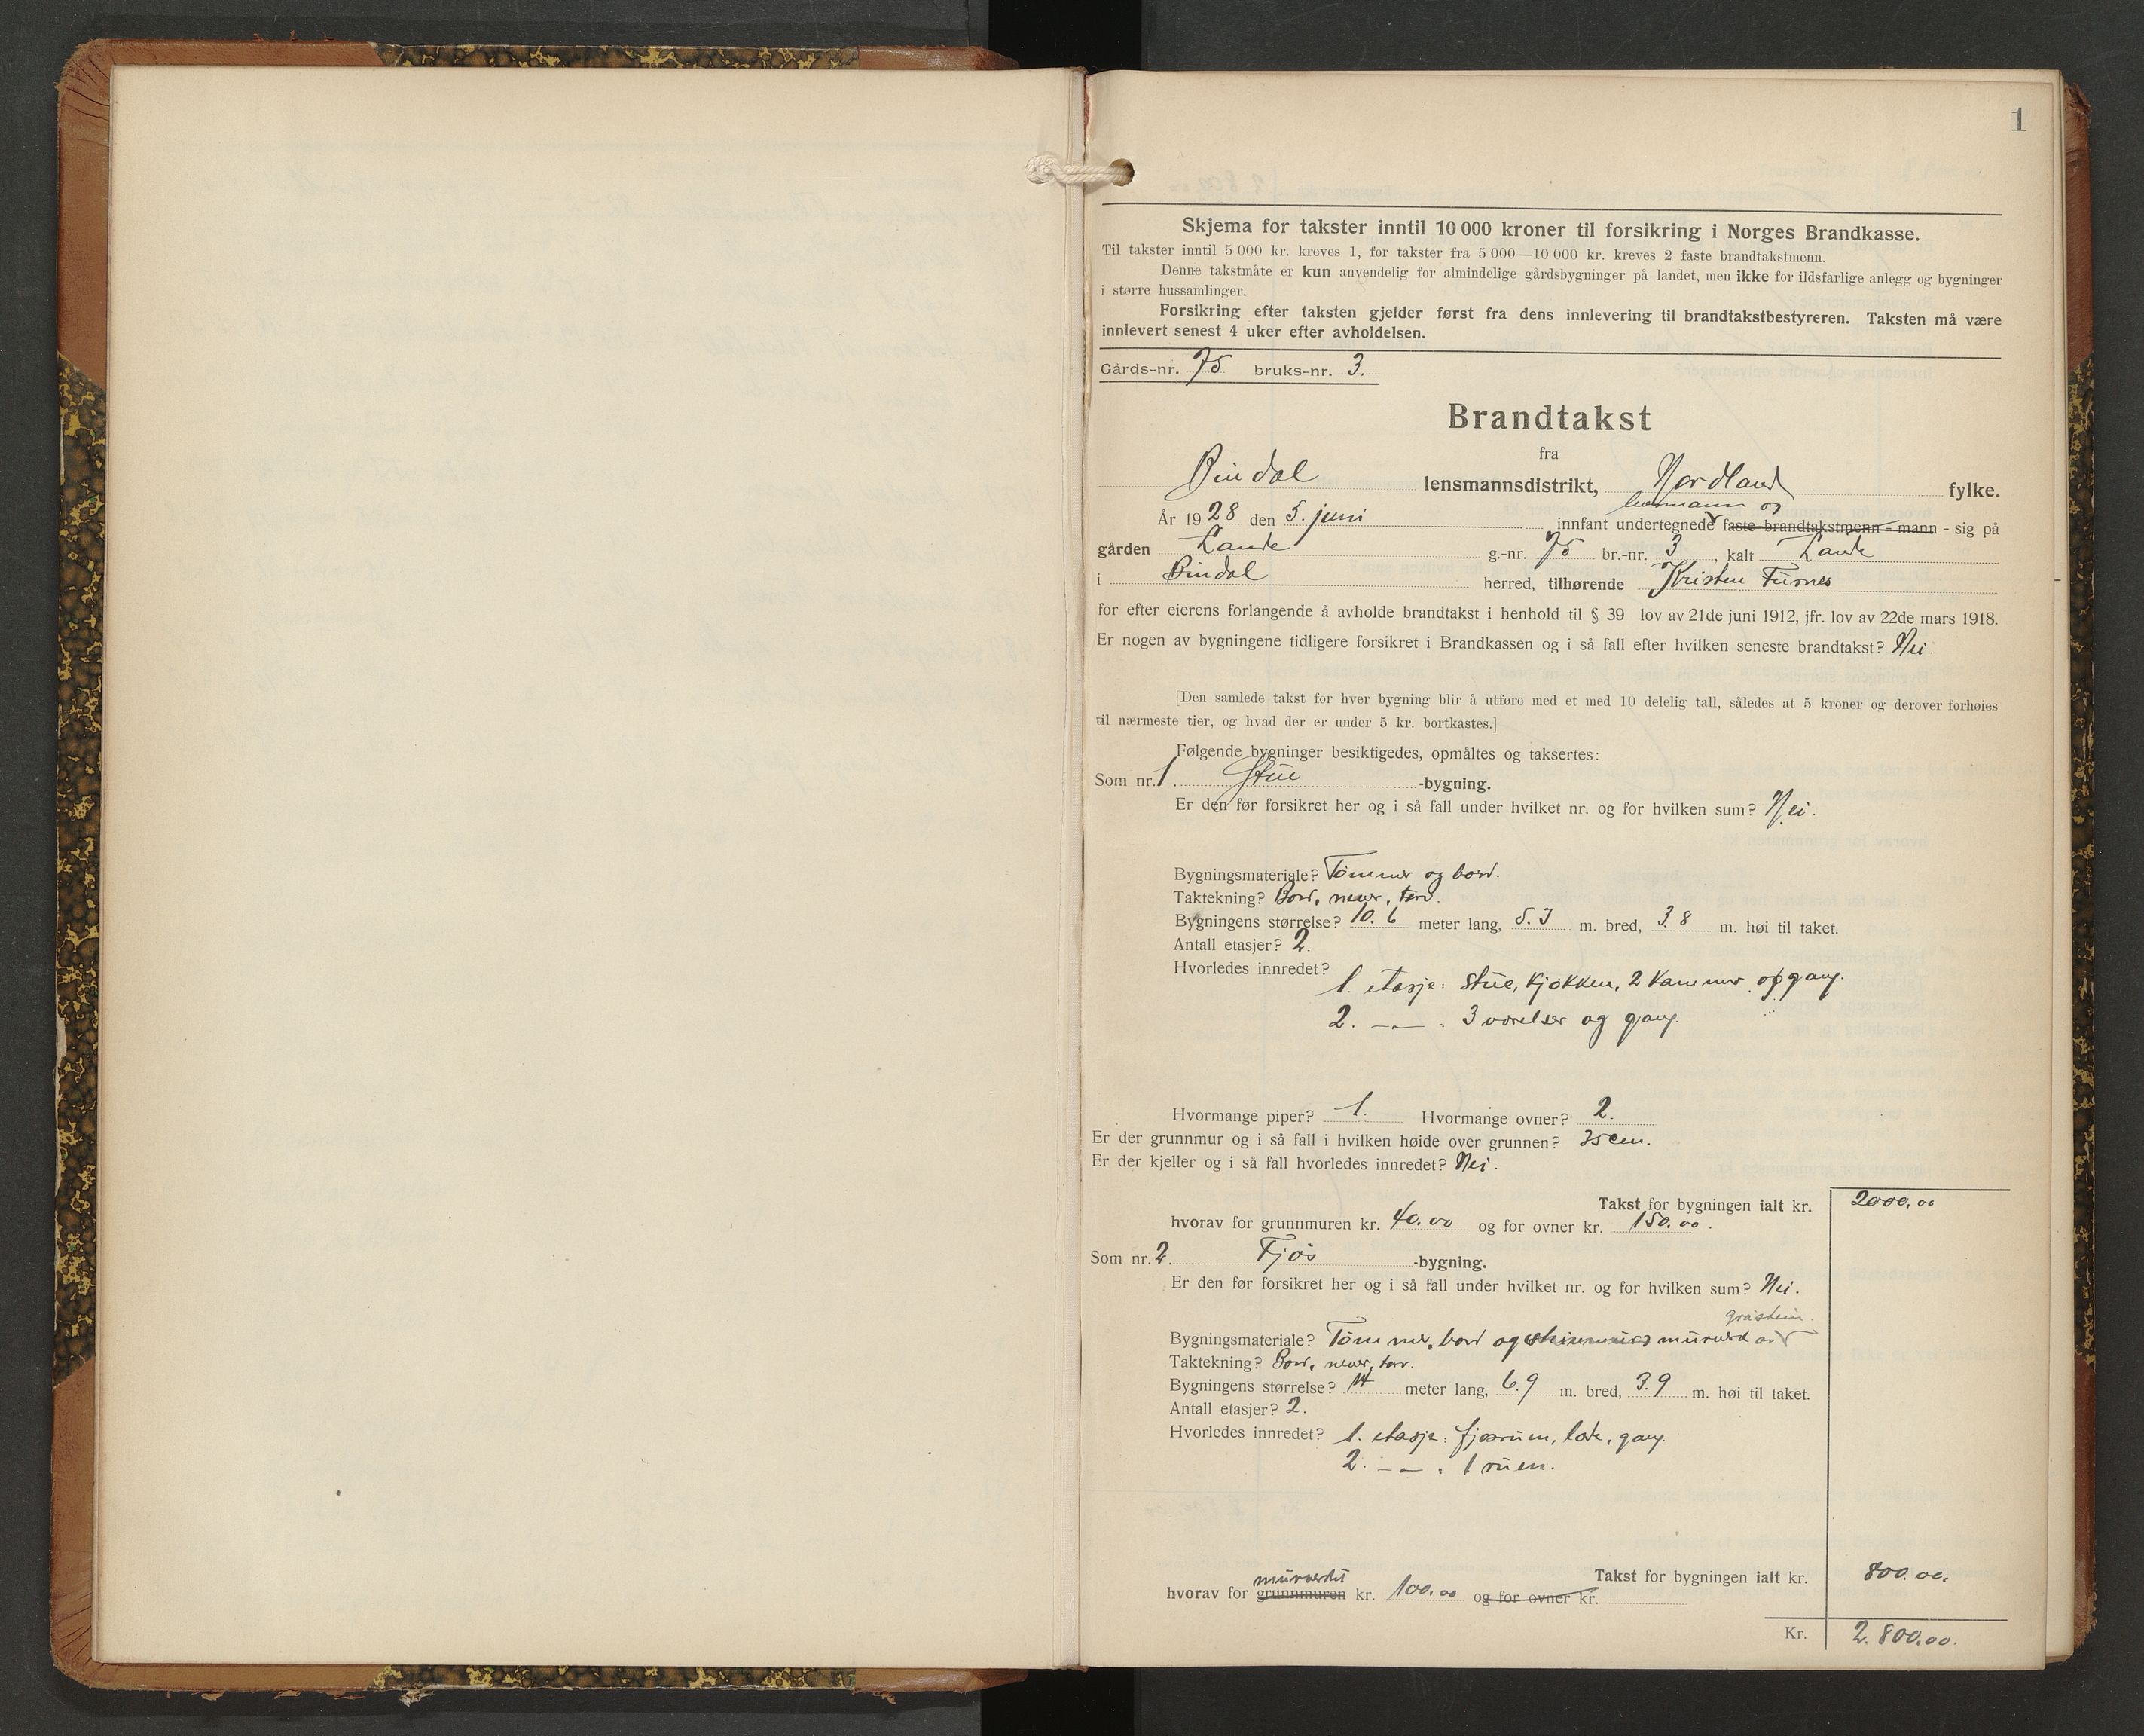 1
Skjema for takster inntil 10 000 kroner til forsikring i Norges Brandkasse.
Til takster inntil 5 000 kr. kreves 1, for takster fra 5 000—10 000 kr. kreves 2 faste brandtakstmenn.
Denne takstmåte er kun anvendelig for almindelige gårdsbygninger på landet, men ikke for ildsfarlige anlegg og bygninger
i større hussamlinger.
Forsikring efter taksten gjelder først fra dens innlevering til brandtakstbestyreren. Taksten må være
innlevert senest 4 uker efter avholdelsen.
Gårds-nr. 75 bruks-nr. 3.
Brandtakst
fra
Bindal lensmannsdistrikt, Nordland fylke.
lensmann og
År 1928 den 5. juni innfant undertegnede faste brandtakstmenn - mann - sig på
gården Lande g.-nr. 75 br.-nr. 3, kalt Lande
i Bindal herred, tilhørende Kristen Furnes
for efter eierens forlangende å avholde brandtakst i henhold til § 39 lov av 21de juni 1912, jfr. lov av 22de mars 1918.
Er nogen av bygningene tidligere forsikret i Brandkassen og i så fall efter hvilken seneste brandtakst? Nei.
[Den samlede takst for hver bygning blir å utføre med et med 10 delelig tall, således at 5 kroner og derover forhøies
til nærmeste tier, og hvad der er under 5 kr. bortkastes.]
Følgende bygninger besiktigedes, opmåltes og taksertes:
Som nr. 1 Stue -bygning.
Er den før forsikret her og i så fall under hvilket nr. og for hvilken sum? Nei.
Bygningsmateriale? Tømmer og bord.
Taktekning? Bord, never, torv.
Bygningens størrelse? 10.6 meter lang, 5.3 m. bred, 3.8 m. høi til taket.
Antall etasjer? 2.
Hvorledes innredet?
1. etasje: stue, kjøkken, 2 kammer og gang.
2. —"— : 3 værelser og gang.
Hvormange piper? 1. Hvormange ovner? 2.
Er der grunnmur og i så fall i hvilken høide over grunnen? 35 cm.
Er der kjeller og i så fall hvorledes innredet? Nei.
Takst for bygningen ialt kr. 2000.00
hvorav for grunnmuren kr. 40.00 og for ovner kr. 150.00.
Som nr. 2 Fjøs -bygning.
Er den før forsikret her og i så fall under hvilket nr. og for hvilken sum? Nei.
gråstein.
Bygningsmateriale? Tømmer, bord og murverk av
Taktekning? Bord, never, torv.
Bygningens størrelse? 14 meter lang, 6.9 m. bred, 3.9 m. høi til taket.
Antall etasjer? 2.
Hvorledes innredet? 1. etasje: fjøsrum, lade, gang.
2. —"— : 1 rum.
Takst for bygningen ialt kr. 800.00.
murverket
hvorav for grunnmuren kr. 100.00 og for ovner kr.
Kr. 2.800.00.